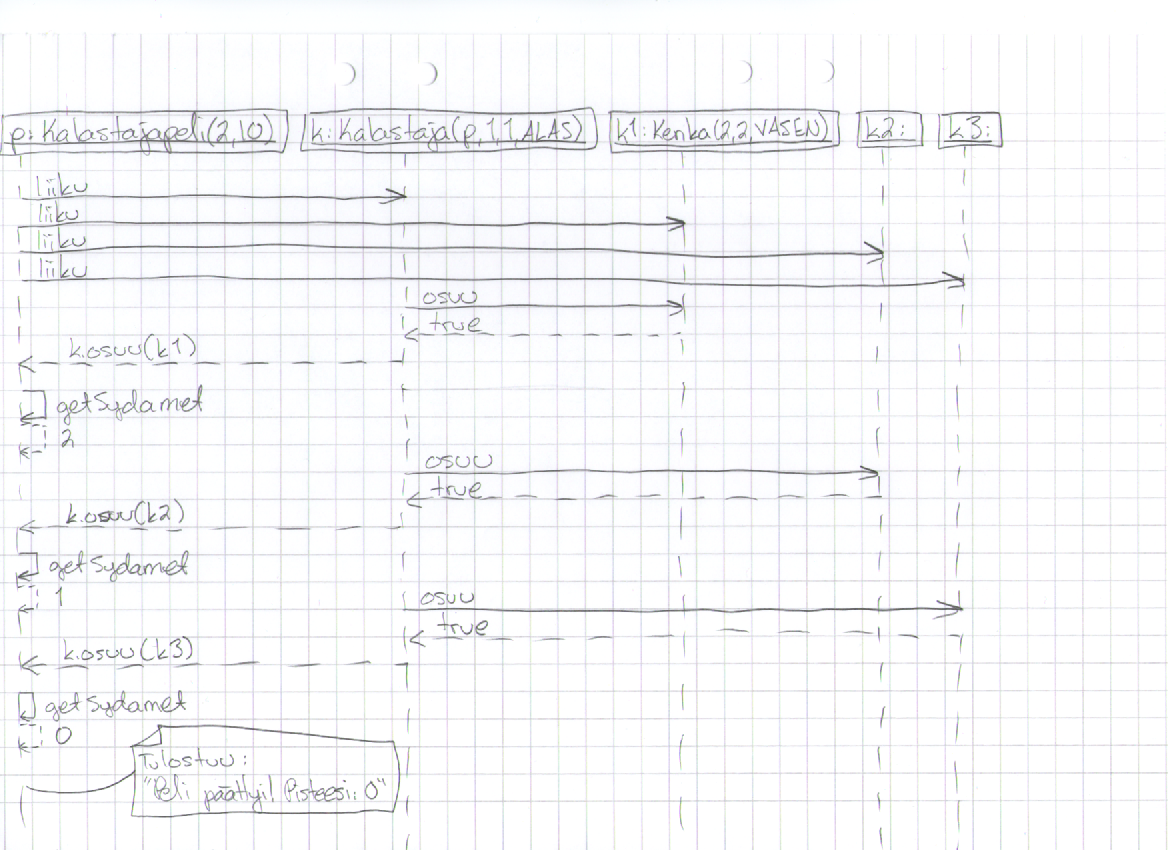 p: Kalastajapeli(2,10) k: Kalastaja(p,1,1,ALAS) k1: Kenka(2,2,VASEN) k2: k3:
liiku
liiku
liiku
liiku
osuu
true
k.osuu(k1)
getSydamet
2
osuu
true
k.osuu(k2)
getSydamet
1
osuu
true
k.osuu(k3)
getSydamet
0
Tulostuu:
"Peli päättyi! Pisteesi: 0"